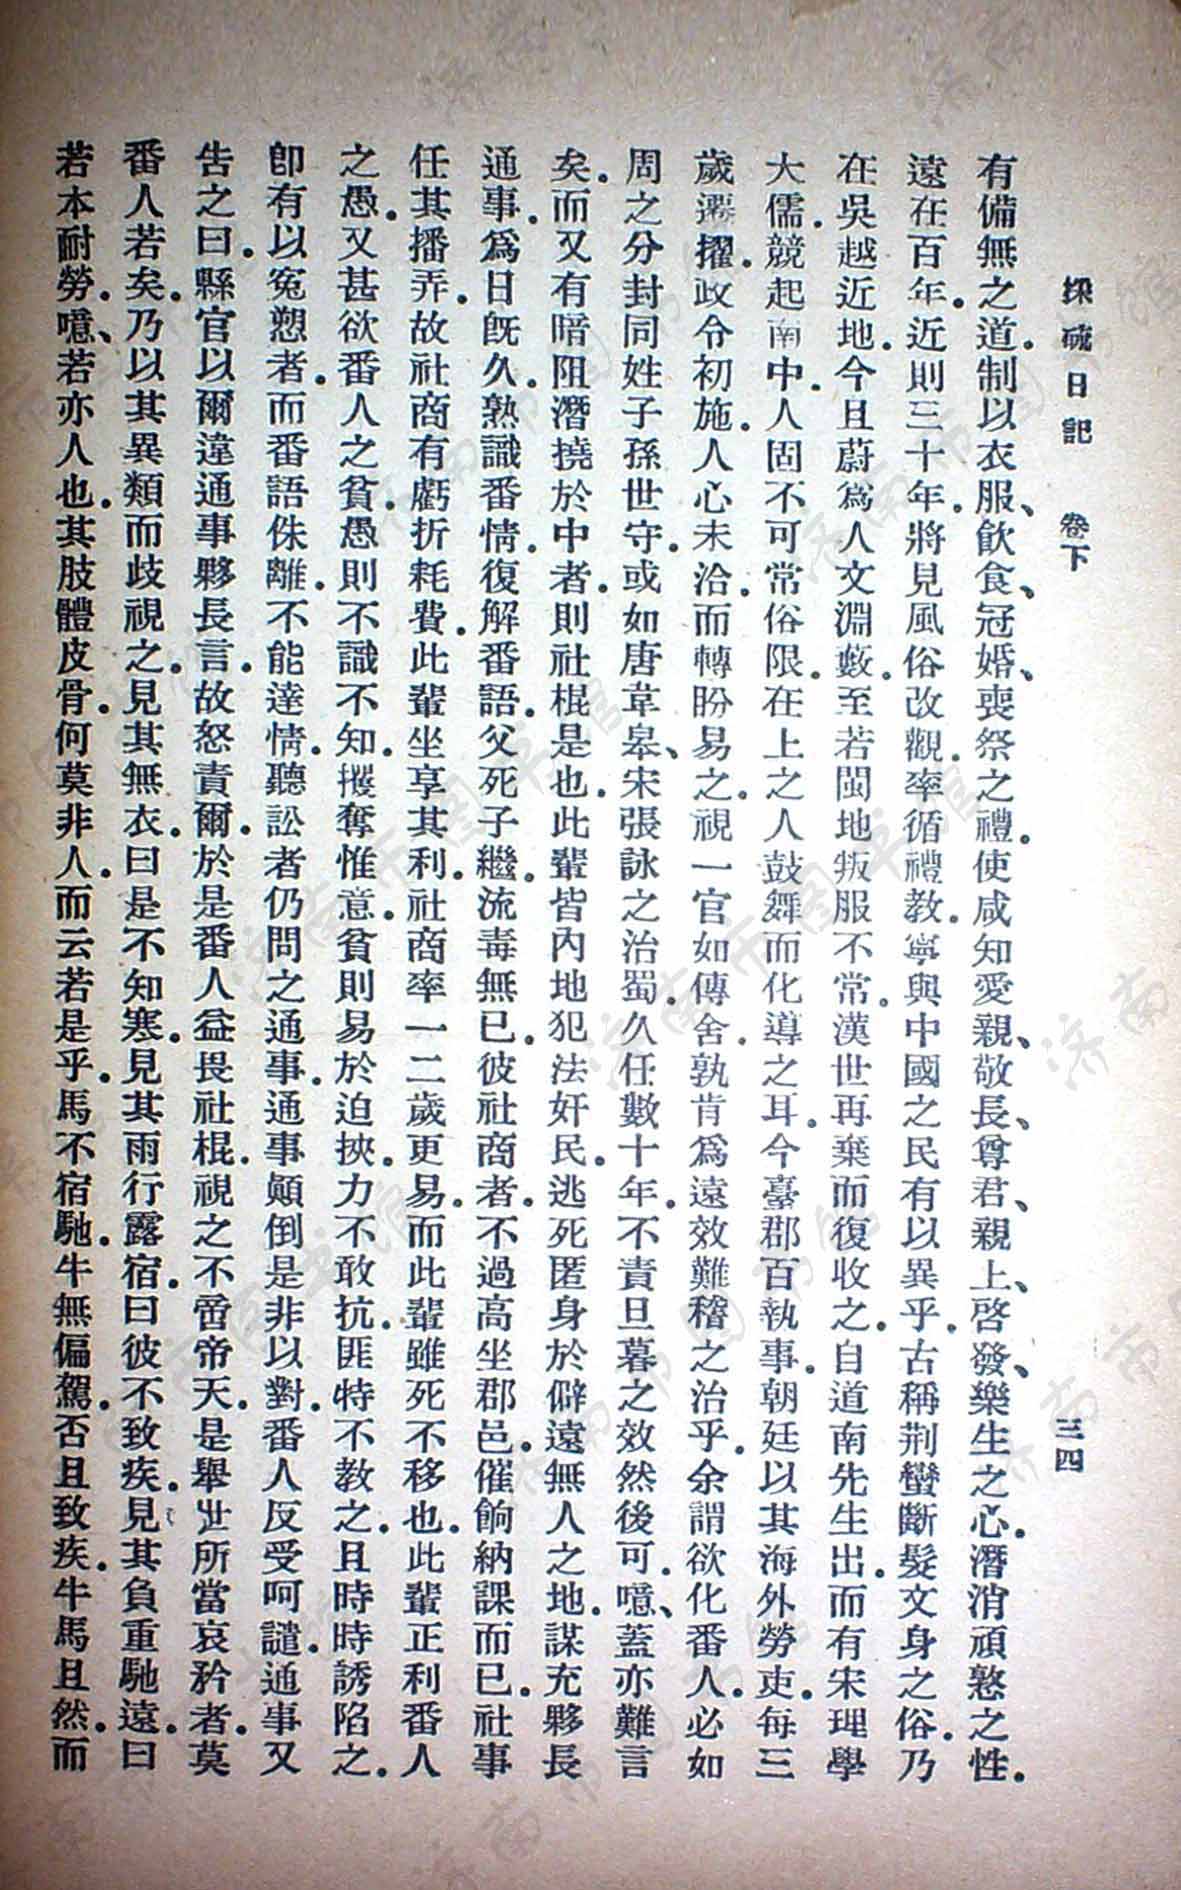 採硫日記　卷下　三四
有備無之道。制以衣服、飮食、冠婚、喪祭之禮。使咸知愛親、敬長、尊君、親上、啓發、樂生之心。潛消頑憗之性。
遠在百年。近則三十年。將見風俗改觀。率循禮教。寧與中國之民有以異乎。古稱荆蠻斷髮文身之俗。乃
在吳越近地。今且蔚爲人文淵藪。至若閩地叛服不常。漢世再棄而復收之。自道南先生出。而有宋理學
大儒。競起南中。人固不可常俗限。在上之人鼓舞而化導之耳。今臺郡百執事。朝廷以其海外勞吏。每三
歲遷擢。政令初施。人心未洽。而轉盼易之。視一官如傳舍。孰肯爲遠效難稽之治乎。余謂欲化番人。必如
周之分封同姓子孫世守。或如唐韋皋、宋張詠之治蜀。久任數十年。不責旦暮之效然後可。噫、蓋亦難言
矣。而又有暗阻潛撓於中者。則社棍是也。此輩皆內地犯法奸民。逃死匿身於僻遠無人之地。謀充夥長
通事。爲日旣久。熟識番情。復解番語。父死子繼。流毒無已。彼社商者。不過高坐郡邑。催餉納課而已。社事
任其播弄。故社商有虧折耗費。此輩坐享其利。社商率一二歲更易。而此輩雖死不移也。此輩正利番人
之愚。又甚欲番人之貧。愚則不識不知。攫奪惟意。貧則易於迫挾。力不敢抗。匪特不教之。且時時誘陷之。
卽有以寃愬者。而番語侏離。不能達情。聽訟者仍問之通事。通事顚倒是非以對。番人反受呵譴。通事又
告之曰。縣官以爾違通事夥長言。故怒責爾。於是番人益畏社棍。視之不啻帝天。是舉世所當哀矜者。莫
番人若矣。乃以其異類而歧視之。見其無衣。曰是不知寒。見其雨行露宿。曰彼不致疾。見其負重馳遠。曰
若本耐勞。噫、若亦人也。其肢體皮骨。何莫非人。而云若是乎。馬不宿馳。牛無偏駕。否且致疾。牛馬且然。而